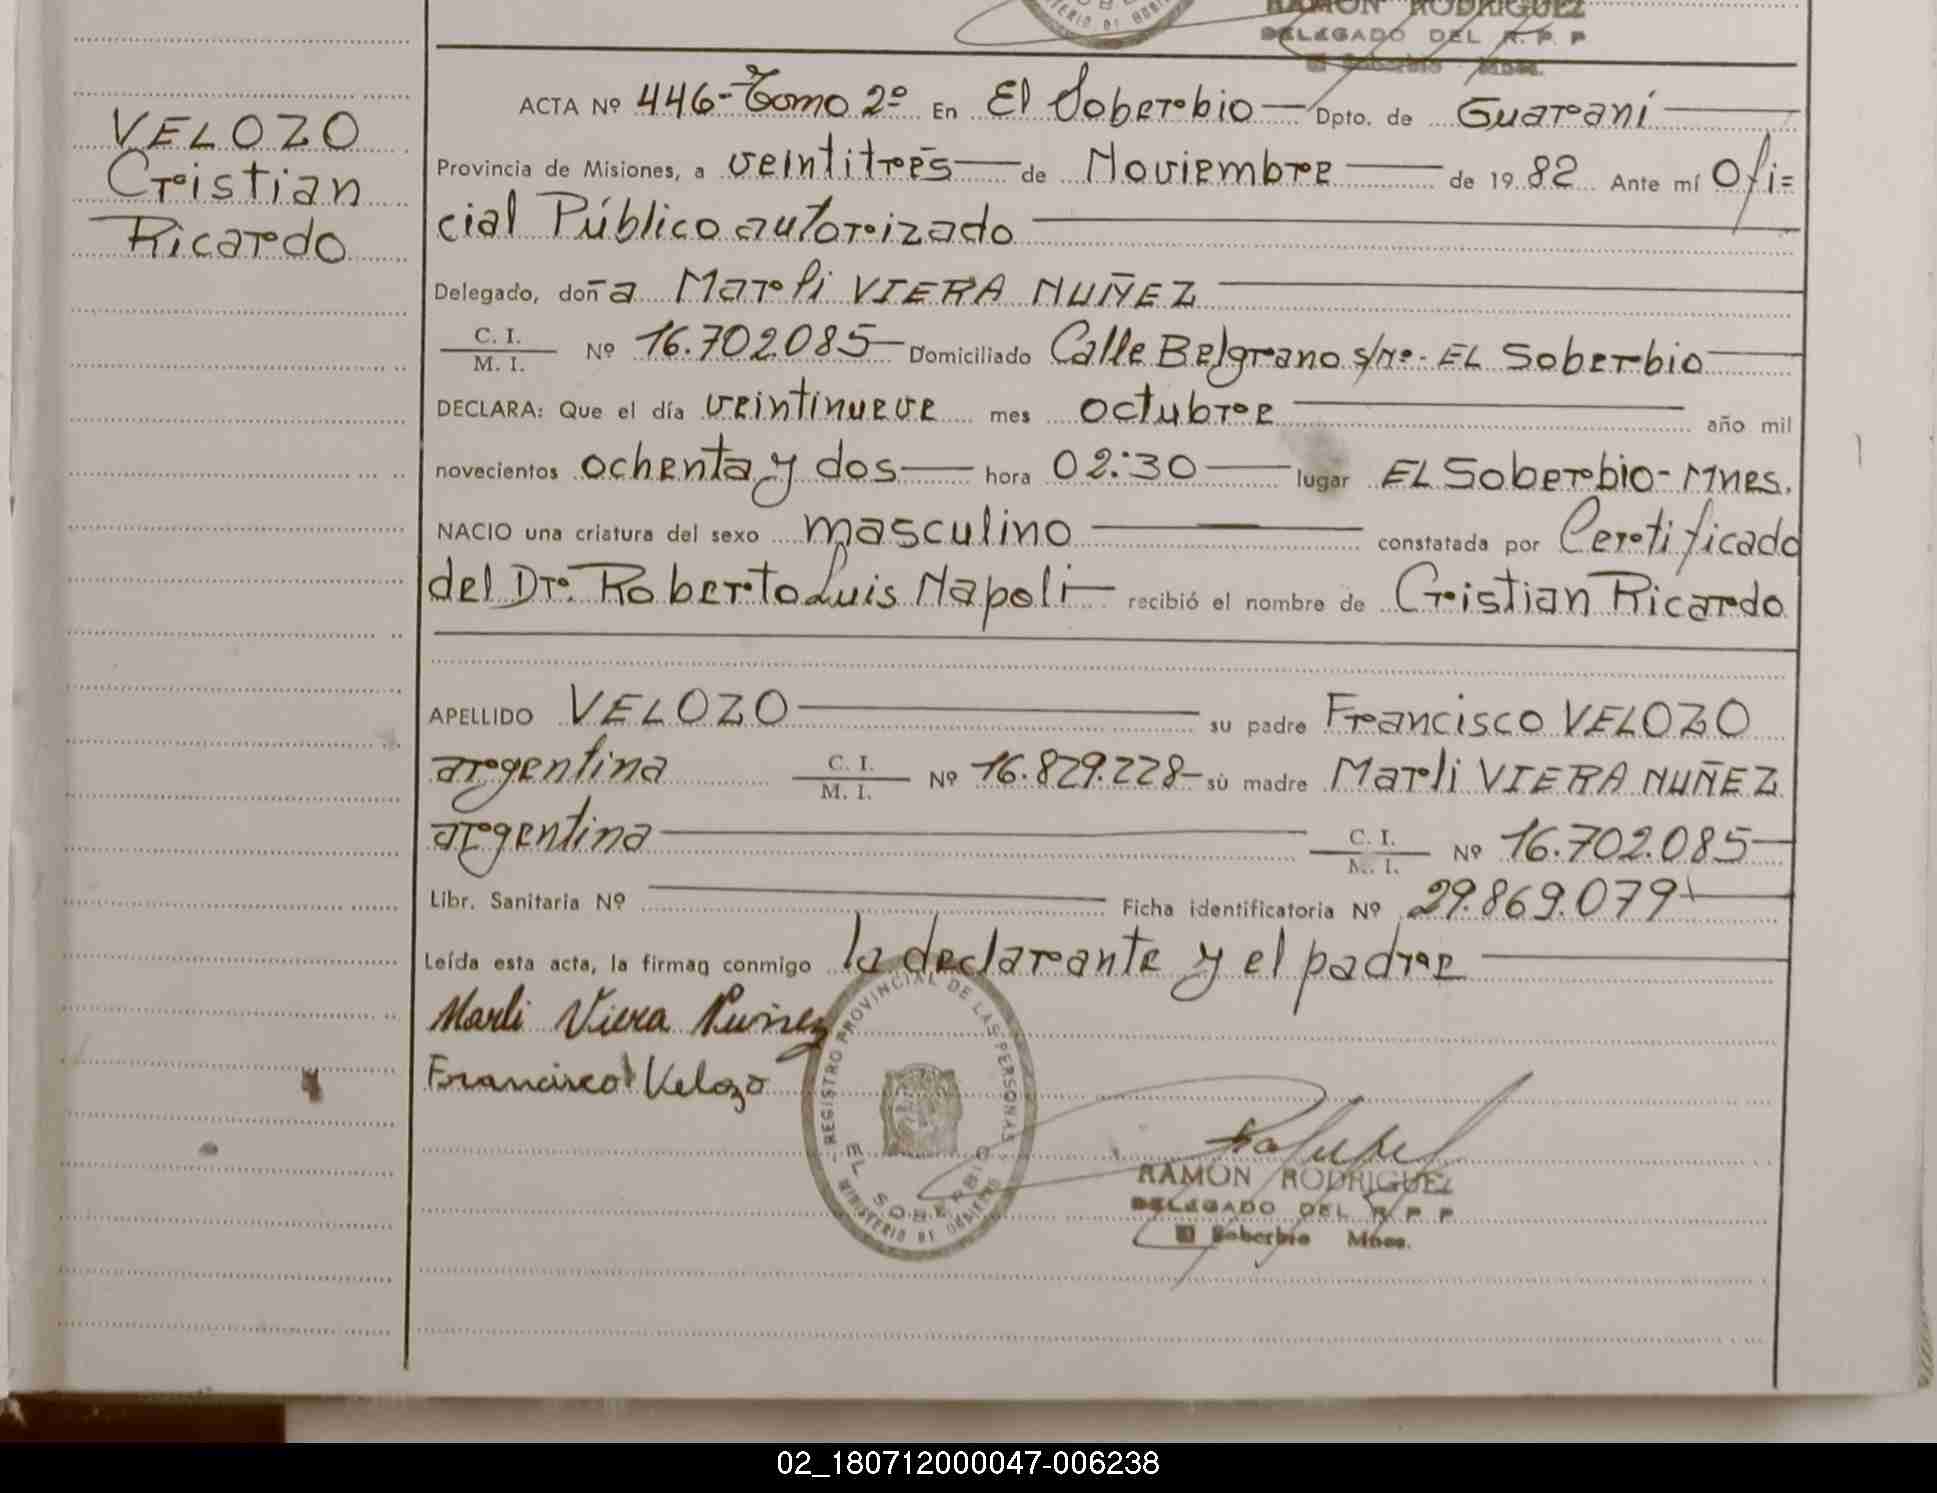 RAMON RODRIGUEZ
DELEGADO DEL R. P. P
El Soberbio Mnes.
VELOZO
Cristian
Ricardo
ACTA Nº 446-Tomo 2º En El Soberbio Dpto. de Guaraní
Provincia de Misiones, a veintitrés de Noviembre de 1982 Ante mí Ofi=
cial Público autorizado
Delegado, doña Marli VIERA NUÑEZ
C. I.
M. I. Nº 16.702.085 Domiciliado Calle Belgrano s/nº- EL Soberbio
DECLARA: Que el día veintinueve mes octubre año mil
novecientos ochenta y dos hora 02:30 lugar EL Soberbio-Mnes.
NACIO una criatura del sexo masculino constatada por Certificado
del Dr. Roberto Luis Napoli recibió el nombre de Cristian Ricardo
APELLIDO VELOZO su padre Francisco VELOZO
argentina C. I.
M. I. Nº 16.829.228 su madre Marli VIERA NUÑEZ
argentina C. I.
M. I. Nº 16.702.085
Libr. Sanitaria Nº Ficha identificatoria Nº 29.869.079
Leída esta acta, la firman conmigo la declarante y el padre
Marli Viera Nuñez
Francisco Velozo
REGISTRO PROVINCIAL DE LAS PERSONAS
EL SOBERBIO
MINISTERIO DE GOBIERNO
RAMON RODRIGUEZ
DELEGADO DEL R. P. P
El Soberbio Mnes.
02_180712000047-006238